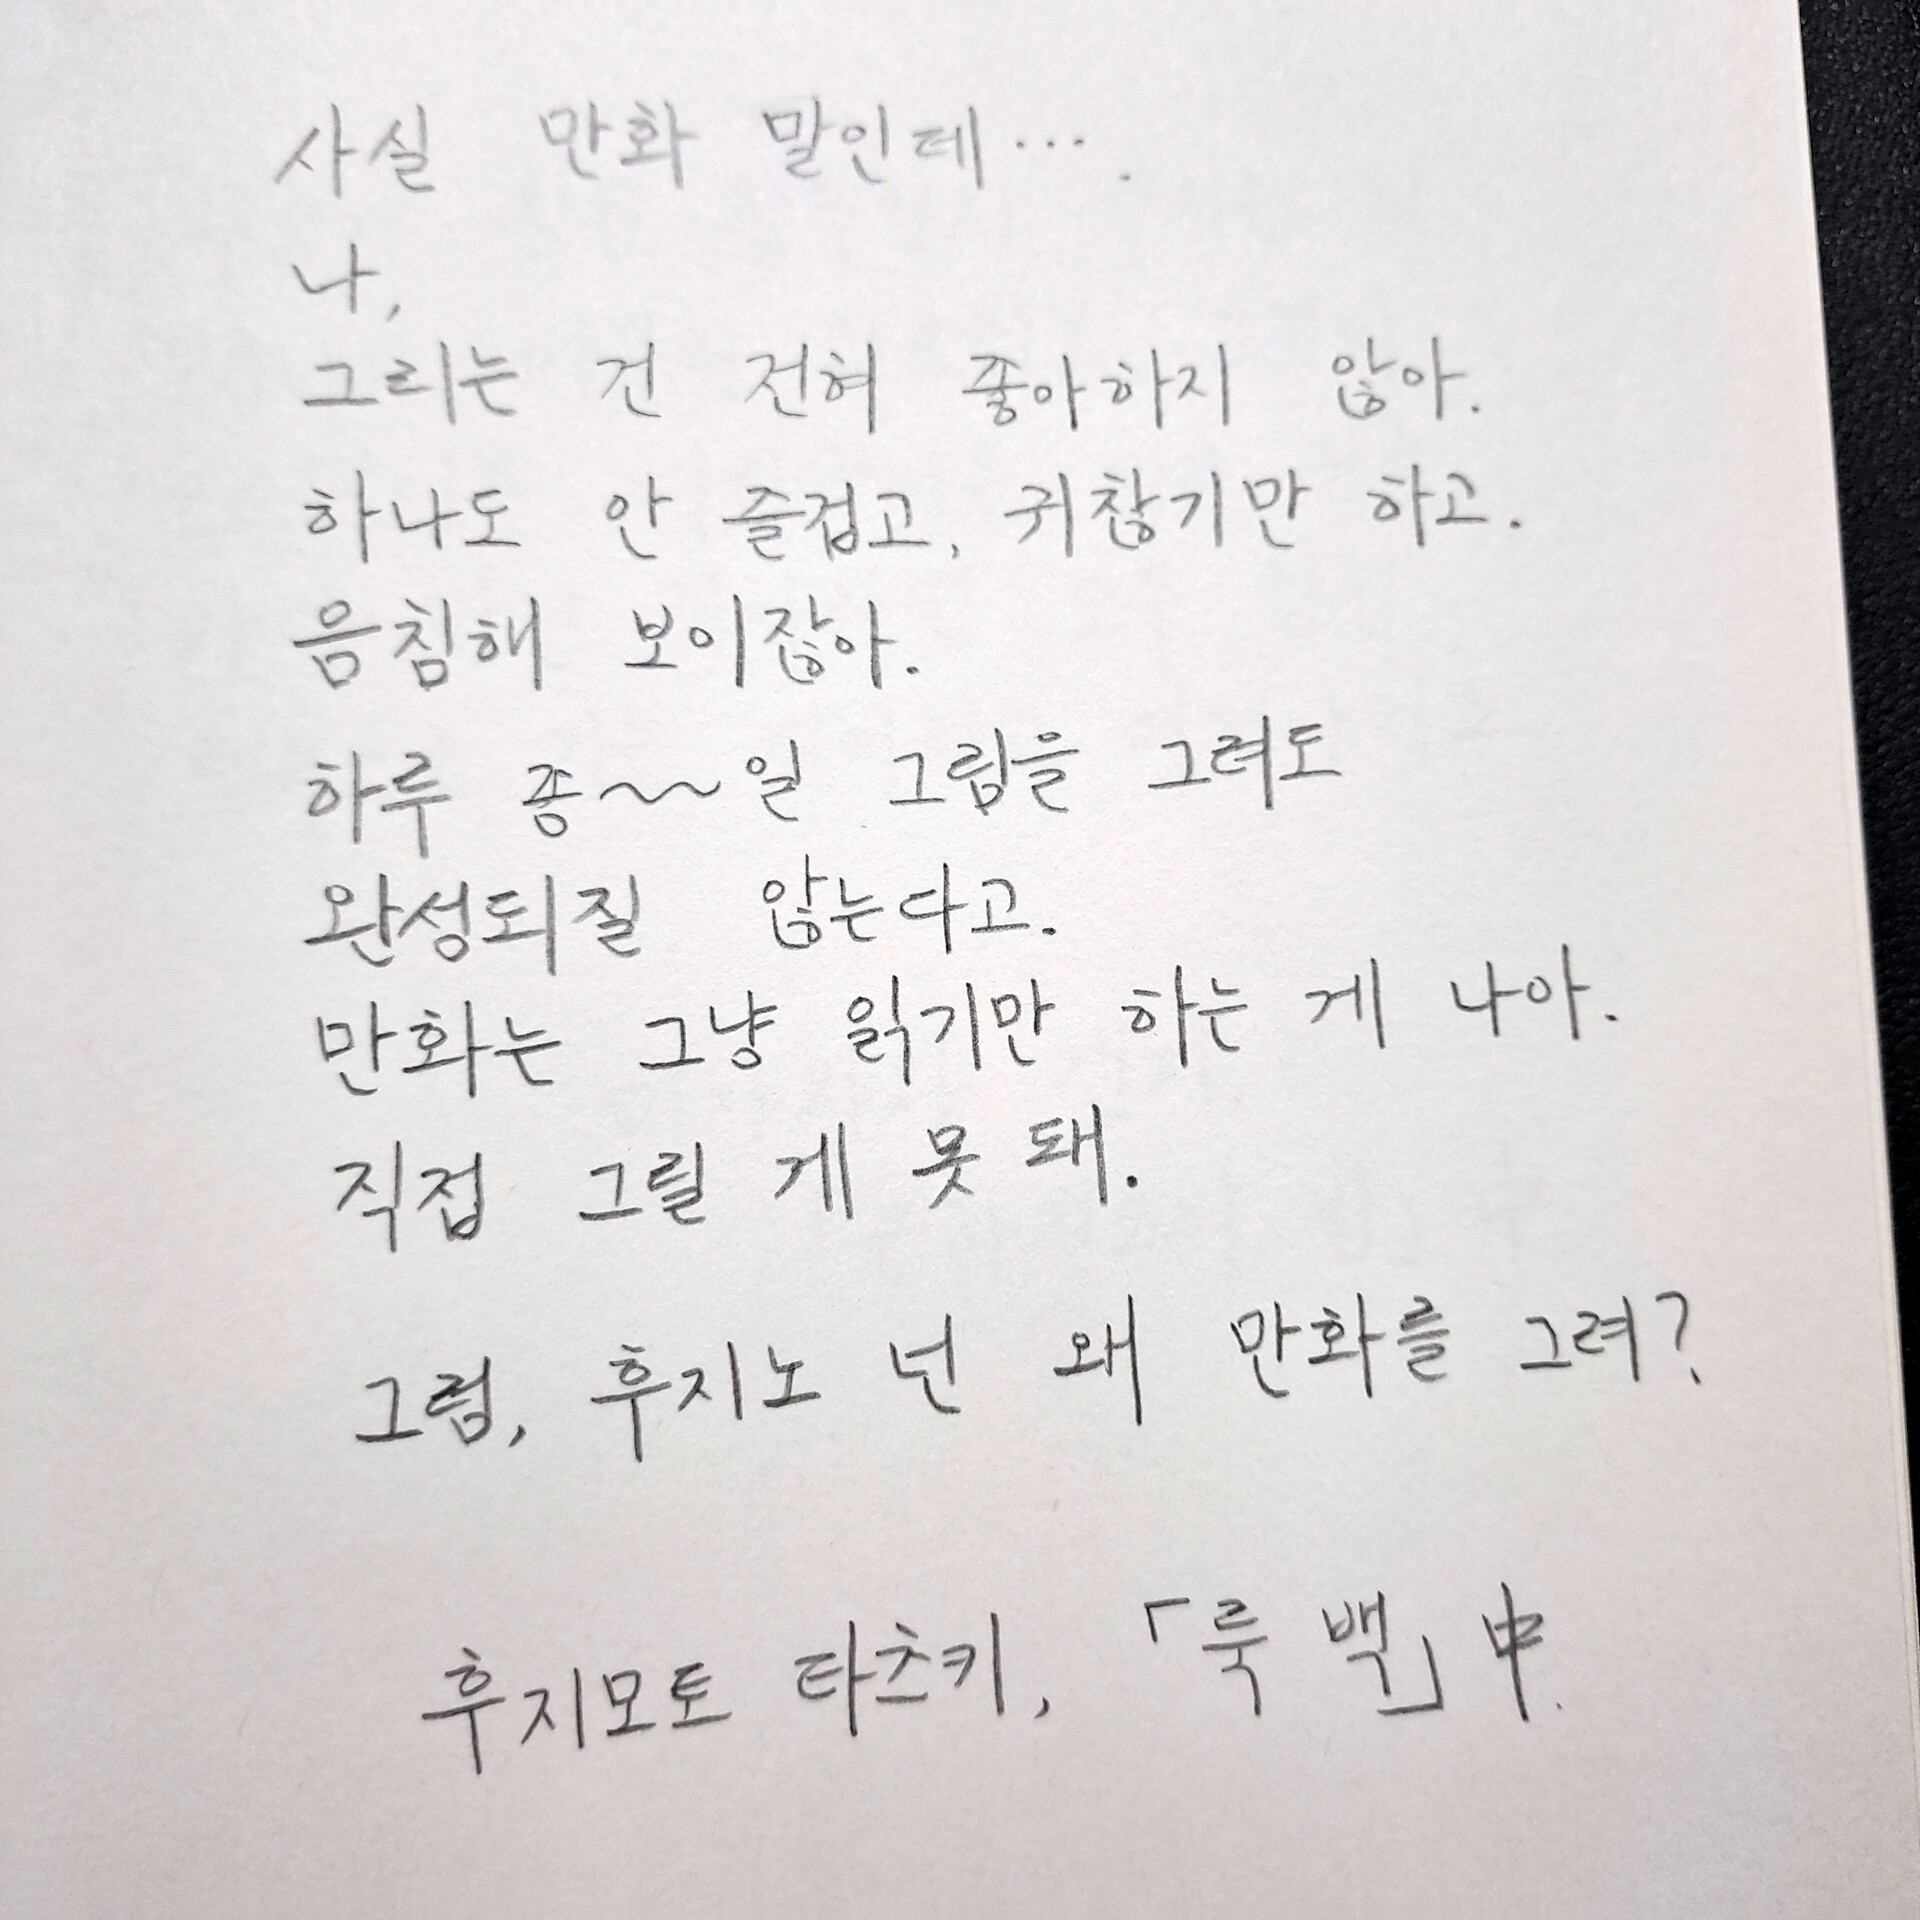 사실 만화 말인데….
나,
그리는 건 전혀 좋아하지 않아.
하나도 안 즐겁고, 귀찮기만 하고.
음침해 보이잖아.
하루 종~~일 그림을 그려도
완성되질 않는다고.
만화는 그냥 읽기만 하는 게 나아.
직접 그릴 게 못 돼.
그럼, 후지노 넌 왜 만화를 그려?
후지모토 타츠키, 「룩 백」 中.